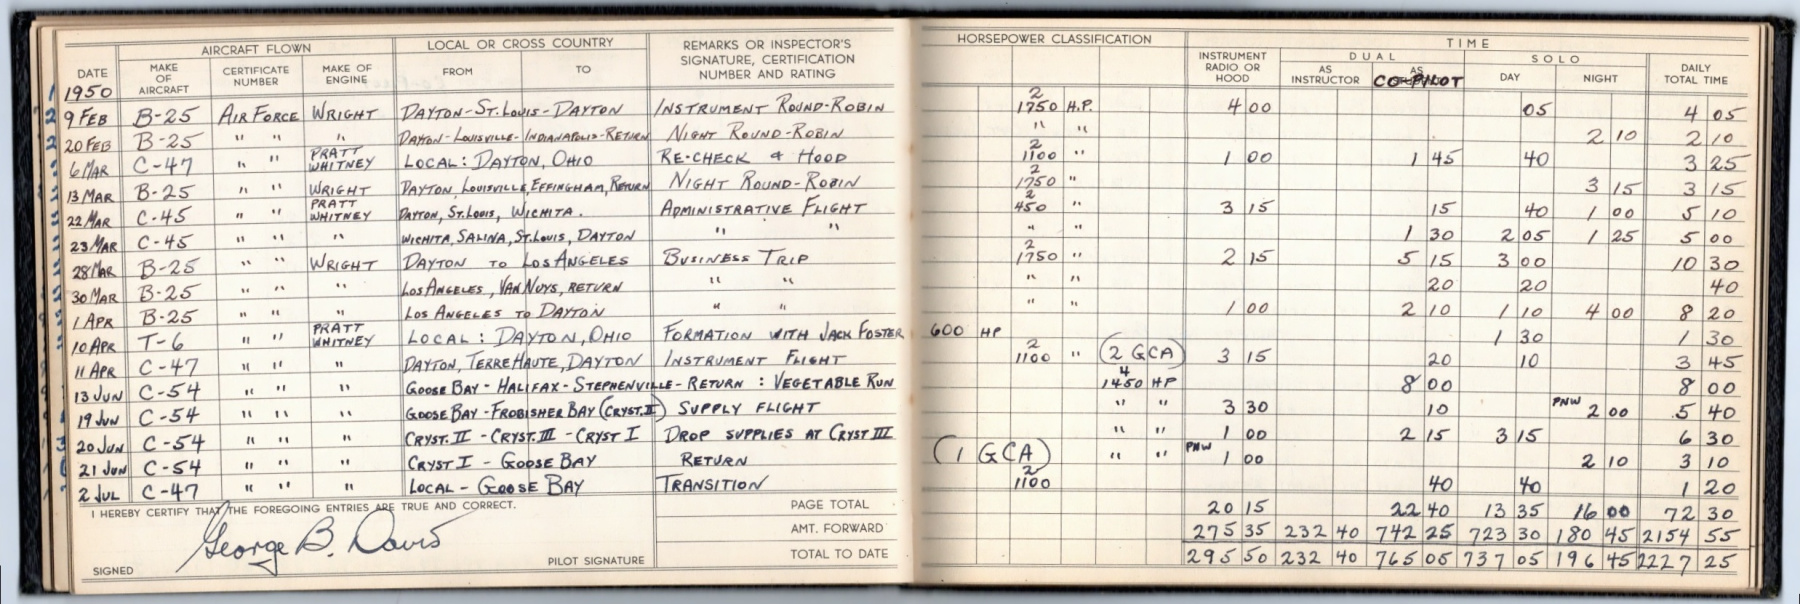 AIRCRAFT FLOWN LOCAL OR CROSS COUNTRY REMARKS OR INSPECTOR'S SIGNATURE, CERTIFICATION NUMBER AND RATING HORSEPOWER CLASSIFICATION TIME
DATE MAKE OF AIRCRAFT CERTIFICATE NUMBER MAKE OF ENGINE FROM TO INSTRUMENT RADIO OR HOOD DUAL SOLO DAILY TOTAL TIME
AS INSTRUCTOR AS CO-PILOT DAY NIGHT
1950
9 FEB B-25 AIR FORCE WRIGHT DAYTON-ST. LOUIS-DAYTON INSTRUMENT ROUND-ROBIN 2 1750 H.P. 4 00 05 4 05
20 FEB B-25 " " " DAYTON-LOUISVILLE-INDIANAPOLIS-RETURN NIGHT ROUND-ROBIN " " 2 10 2 10
6 MAR C-47 " " PRATT WHITNEY LOCAL: DAYTON, OHIO RE-CHECK & HOOD 2 1100 " 1 00 1 45 40 3 25
13 MAR B-25 " " WRIGHT DAYTON, LOUISVILLE, EFFINGHAM, RETURN NIGHT ROUND-ROBIN 2 1750 " 3 15 3 15
22 MAR C-45 " " PRATT WHITNEY DAYTON, ST. LOUIS, WICHITA. ADMINISTRATIVE FLIGHT 2 450 " 3 15 15 40 1 00 5 10
23 MAR C-45 " " " WICHITA, SALINA, ST. LOUIS, DAYTON " " " " 1 30 2 05 1 25 5 00
28 MAR B-25 " " WRIGHT DAYTON TO LOS ANGELES BUSINESS TRIP 2 1750 " 2 15 5 15 3 00 10 30
30 MAR B-25 " " " LOS ANGELES, VAN NUYS, RETURN " " " " 20 20 40
1 APR B-25 " " " LOS ANGELES TO DAYTON " " " " 1 00 2 10 1 10 4 00 8 20
10 APR T-6 " " PRATT WHITNEY LOCAL: DAYTON, OHIO FORMATION WITH JACK FOSTER 600 HP 1 30 1 30
11 APR C-47 " " " DAYTON, TERRE HAUTE, DAYTON INSTRUMENT FLIGHT 2 1100 " (2 GCA) 3 15 20 10 3 45
13 JUN C-54 " " " GOOSE BAY - HALIFAX - STEPHENVILLE - RETURN : VEGETABLE RUN 4 1450 HP 8 00 8 00
19 JUN C-54 " " " GOOSE BAY - FROBISHER BAY (CRYST. II) SUPPLY FLIGHT " " 3 30 10 PNW 2 00 5 40
20 JUN C-54 " " " CRYST. II - CRYST. III - CRYST I DROP SUPPLIES AT CRYST III " " 1 00 2 15 3 15 6 30
21 JUN C-54 " " " CRYST I - GOOSE BAY RETURN (1 GCA) " " PNW 1 00 2 10 3 10
2 JUL C-47 " " " LOCAL - GOOSE BAY TRANSITION 2 1100 40 40 1 20
I HEREBY CERTIFY THAT THE FOREGOING ENTRIES ARE TRUE AND CORRECT. PAGE TOTAL 20 15 22 40 13 35 16 00 72 30
AMT. FORWARD 275 35 232 40 742 25 723 30 180 45 2154 55
George B. Davis
SIGNED PILOT SIGNATURE TOTAL TO DATE 295 50 232 40 765 05 737 05 196 45 2227 25